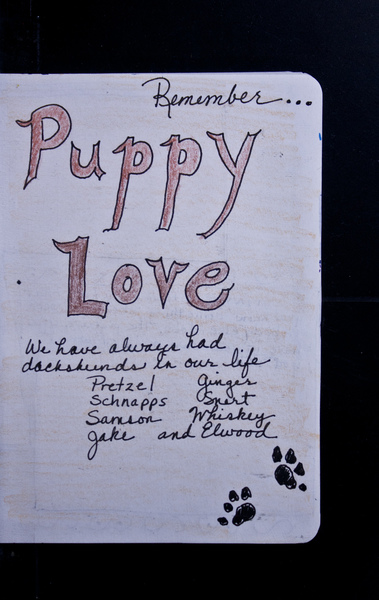 Remember...
Puppy
Love
We have always had
dachshunds in our life
Pretzel Ginger
Schnapps Snert
Samson Whiskey
Jake and Elwood